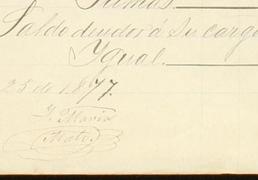 Sumas
Saldo deudor á Su cargo
Igual
25 de 1877.
F. María
Mato